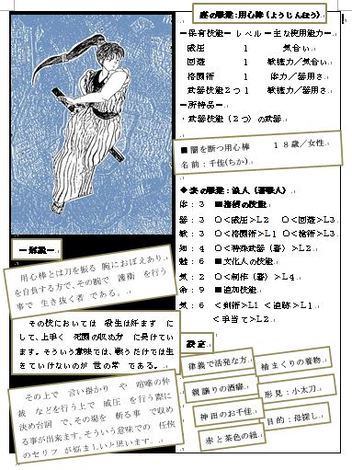 表の職業:用心棒(ようじんぼう)
―保有技能― レベル ―主な使用能力―
威圧 1 気合い
回避 1 敏捷力/気合い
格闘術 1 体力/器用さ
武器技能2つ 1 敏捷力/器用さ
―所持品―
・武器技能(2つ)の武器
■闇を断つ用心棒 18歳/女性
名前:千佳(ちか)
◆裏の職業:浪人(蓄髪人)
体:3 ■格闘の技能
器:3 ○<威圧>L2 ○<回避>L3
敏:3 ○<格闘術>L1 ○<槍術>L3
知:4 ○<特殊武器(暮)>L2
魅:6 ■文化人の技能
気:2 ○<制作(暮)>L4
命:9 ■追加技能
気:6 <剣術>L1 <追跡>L1
<手当て>L2
設定
律義で活発な方
袖まくりの着物
親譲りの酒癖
形見:小太刀
神田のお千佳
目的:母探し
赤と茶色の紐
―解説―
用心棒とは刀を振る腕におぼえあり
を自負する方で、その腕で護衛を行う
事で生き抜く者である。
その技においては殺生は好まずに
して、上手く死闘の収め方に長けてい
ます。そういう意味では、戦うだけでは生
きていけないのが世の常である。
その上で言い掛かりや喧嘩の仲
裁などを行う上で威圧を行う際に
決め台詞で、その場を斬る事で収め
る事が出来ます。そういう意味での任侠
のセリフが好ましいと思います。